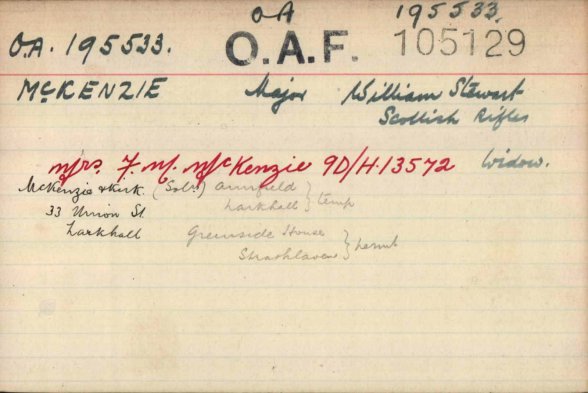 OA 195533.
O.A. 195533. O.A.F. 105129
McKENZIE Major William Stewart
Scottish Rifles
Mrs. F. M. McKenzie 9D/H.13572 Widow.
McKenzie & Kirk (Solrs) Annfield
Larkhall } temp
33 Union St
Larkhall Greenside House
Strathaven } permt